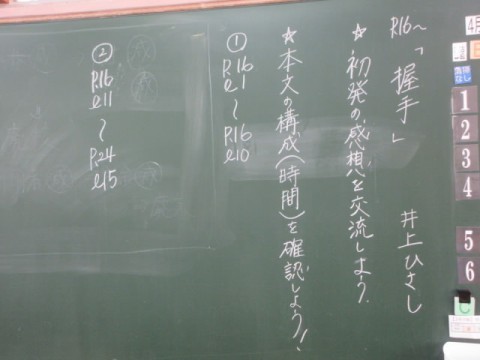 P.16～「握手」 井上ひさし
☆ 初発の感想を交流しよう.
☆ 本文の構成(時間)を確認しよう!
① P.16 l1 ～ P.16 l10
② P.16 l11 ～ P.24 l15
4
清掃なし
1
2
3
4
5
6